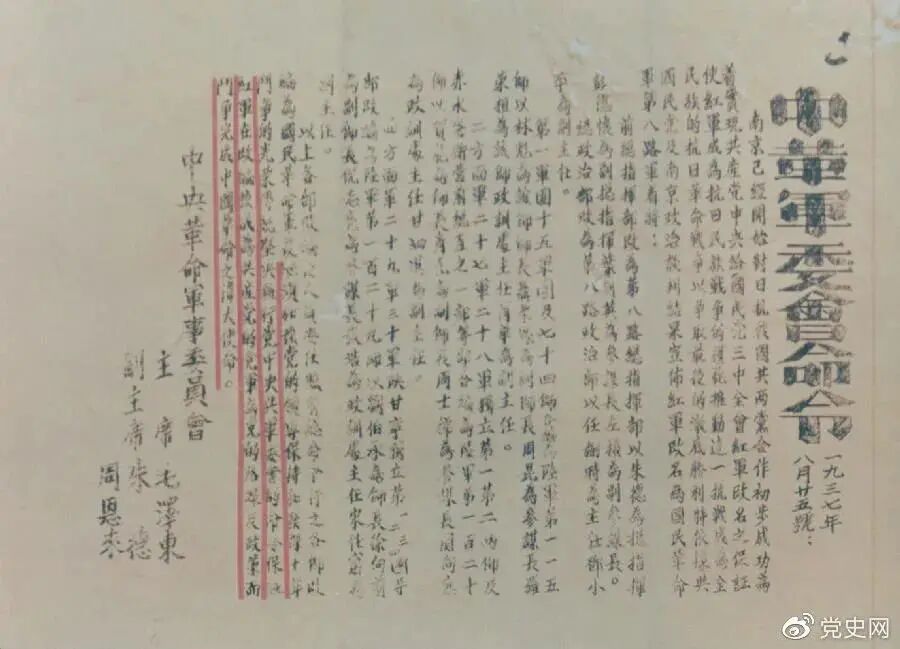 中革軍委會命令
一九三七年
八月廿五號：
南京已經開始對日抗戰國共兩黨合作初步成功為
着實現共產党中央給國民党三中全會紅軍改名之保証
使紅軍成為抗日民族戰爭的模範推動這一抗戰成為全
民族的抗日革命戰爭以爭取最後的澈底勝利特依據共
國民党及南京政治談判結果宣佈紅軍改名為國民革命
軍第八路軍着將：
前總指揮部改為第八路總指揮部以朱德為總指揮
彭德懷為副總指揮葉劍英為參謀長左權為副參謀長。
總政治部改為第八路政治部以任弼時為主任鄧小
平為副主任。
第一軍團十五軍團及七十四師合編為陸軍第一一五
師以林彪為該師師長聶榮臻為副師長周昆為參謀長羅
榮桓為該師政訓處主任蕭華為副主任。
二方面軍二十七軍二十八軍獨立第一第二兩師及
赤水警衛營前總直之一部等部合編為陸軍第一百二十
師以賀龍為師長蕭克為副師長周士第為參謀長關向應
為政訓處主任甘泗淇為副主任。
四方面軍二十九軍三十軍陝甘寧獨立第一二三四團等
部改編為陸軍第一百二十九師以劉伯承為師長徐向前
為副師長倪志亮為參謀長張浩為政訓處主任宋任窮為
副主任。
以上各部改編後人員委任照前總命令行之各部改
編為國民革命軍後必須加強党的領導保持和發揮十年
鬥爭的光榮傳統堅決執行党中央與軍委會的命令保證
紅軍在改編後成為共產党的党軍為党的路線及政策而
鬥爭完成中國革命之偉大使命。
中央革命軍事委員會
主席毛澤東
副主席朱德
周恩來
@党史网